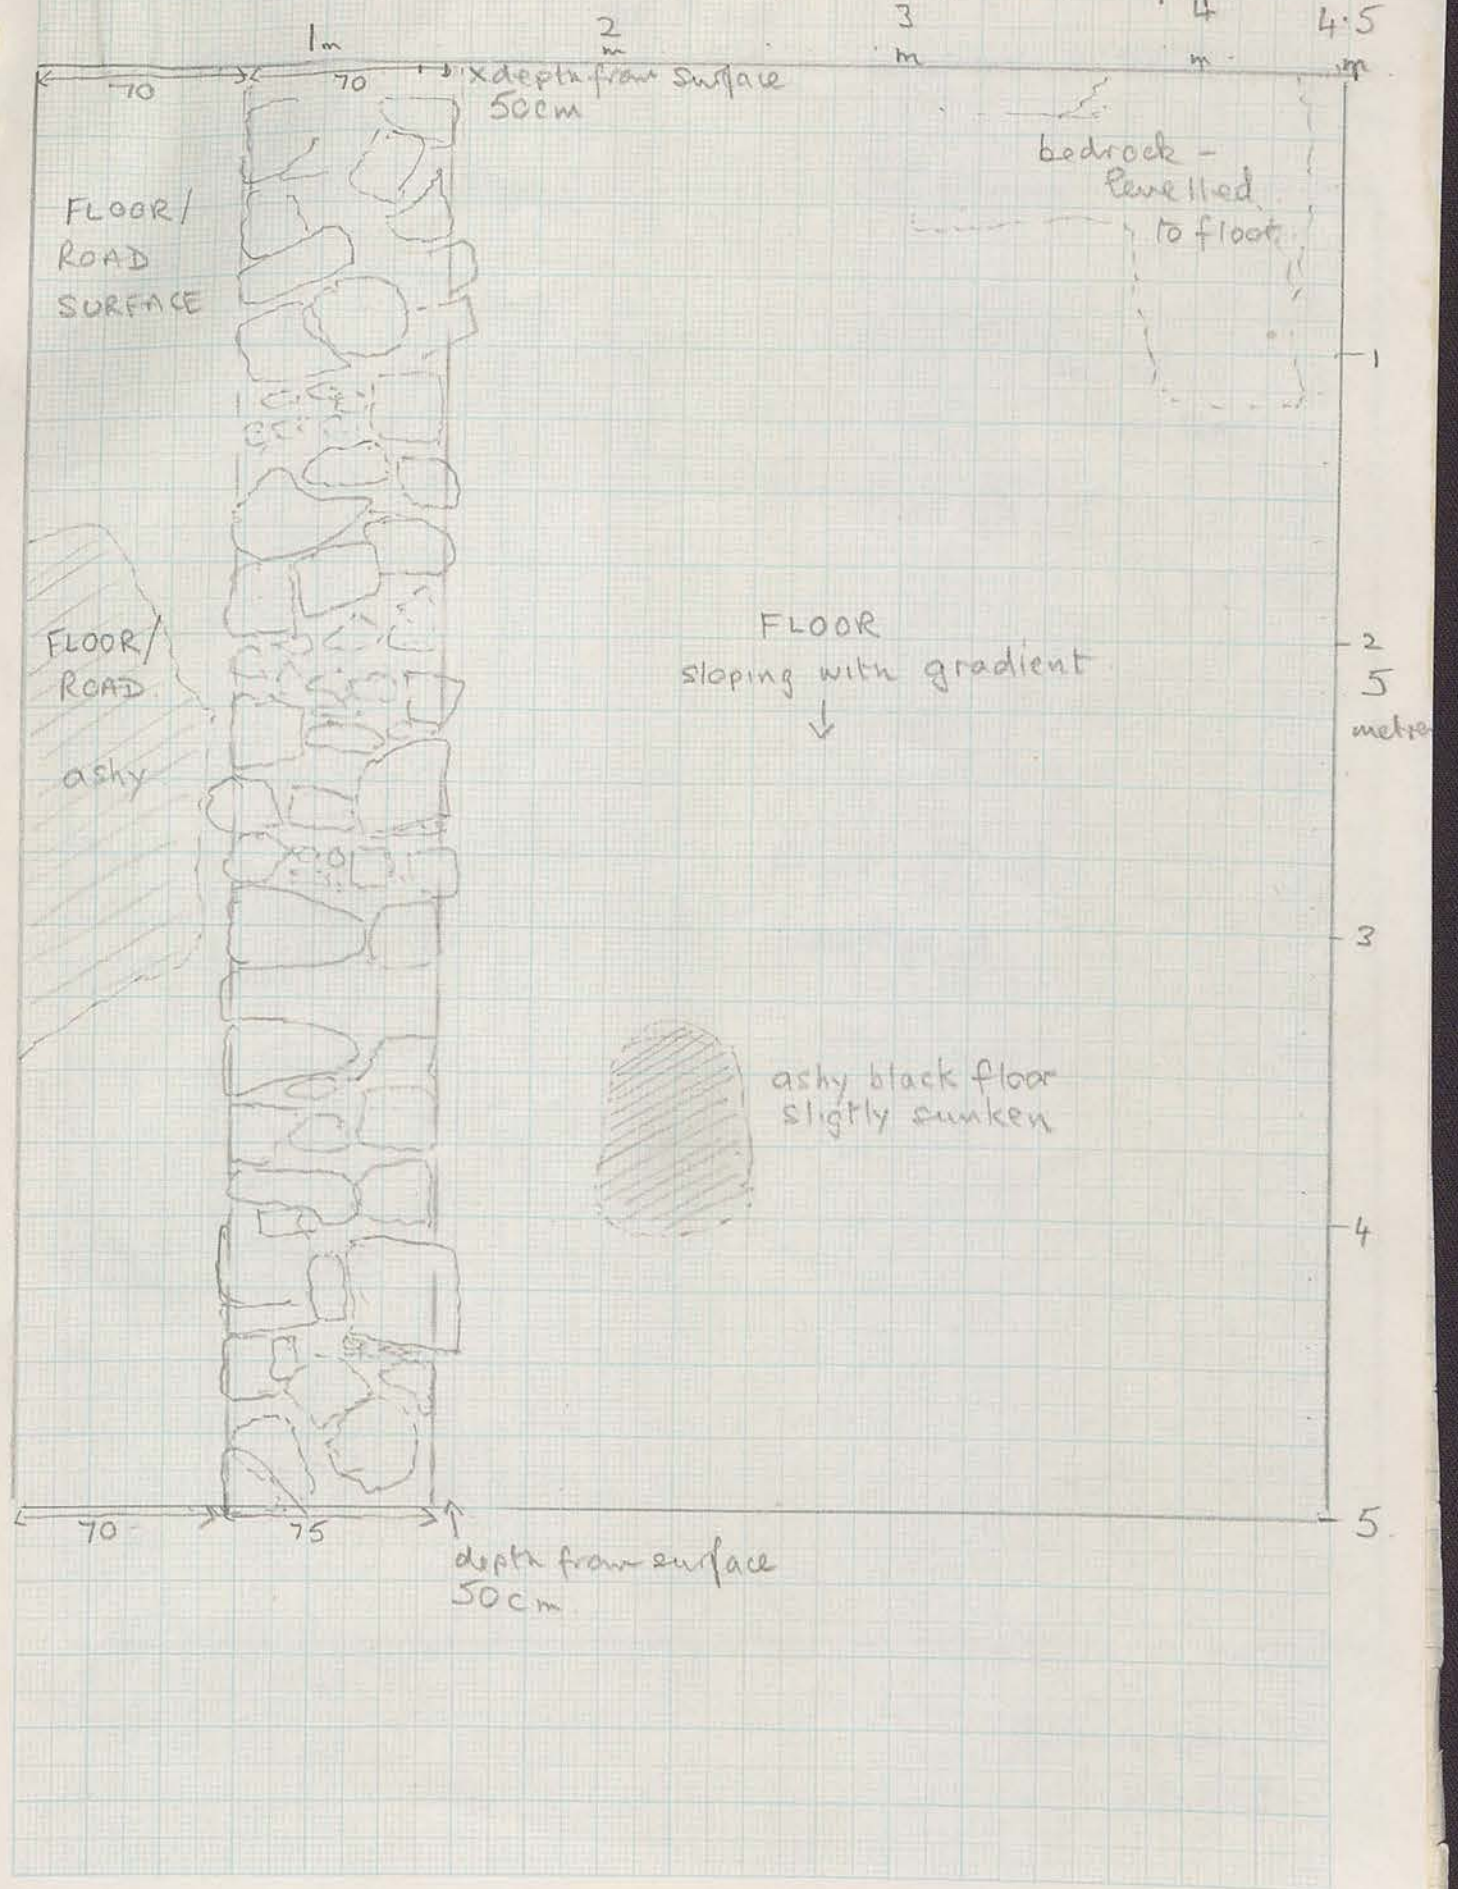 1m 2 m 3 m 4 m 4.5 m
70 70 x depth from surface
50cm
bedrock -
levelled
to floor
FLOOR/
ROAD
SURFACE
1
FLOOR/
ROAD
ashy
FLOOR
sloping with gradient
↓
2
5
metre
3
ashy black floor
sligtly sunken
4
5
70 75
depth from surface
50cm